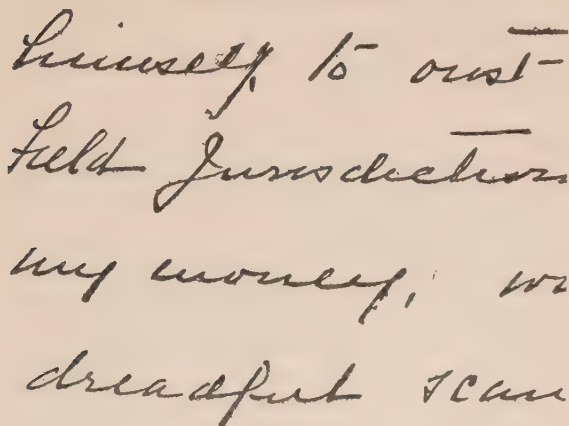 himself, to oust
Field Jurisdiction
my money,
dreadful scan